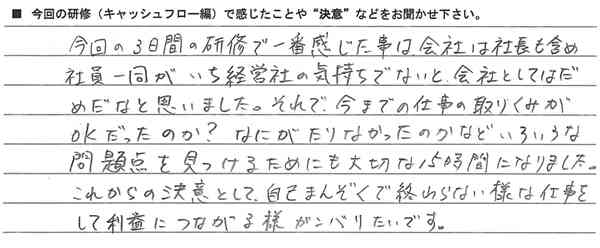 ■ 今回の研修（キャッシュフロー編）で感じたことや“決意”などをお聞かせ下さい。
今回の3日間の研修で一番感じた事は、会社は社長も含め
社員一同がいち経営社の気持ちでないと、会社としてはだ
めだなと思いました。それで、今までの仕事の取りくみが
OKだったのか？なにがたりなかったのかなどいろいろな
問題点を見つけるためにも大切な15時間になりました。
これからの決意として、自己まんぞくで終わらない様な仕事を
して利益につながる様ガンバリたいです。